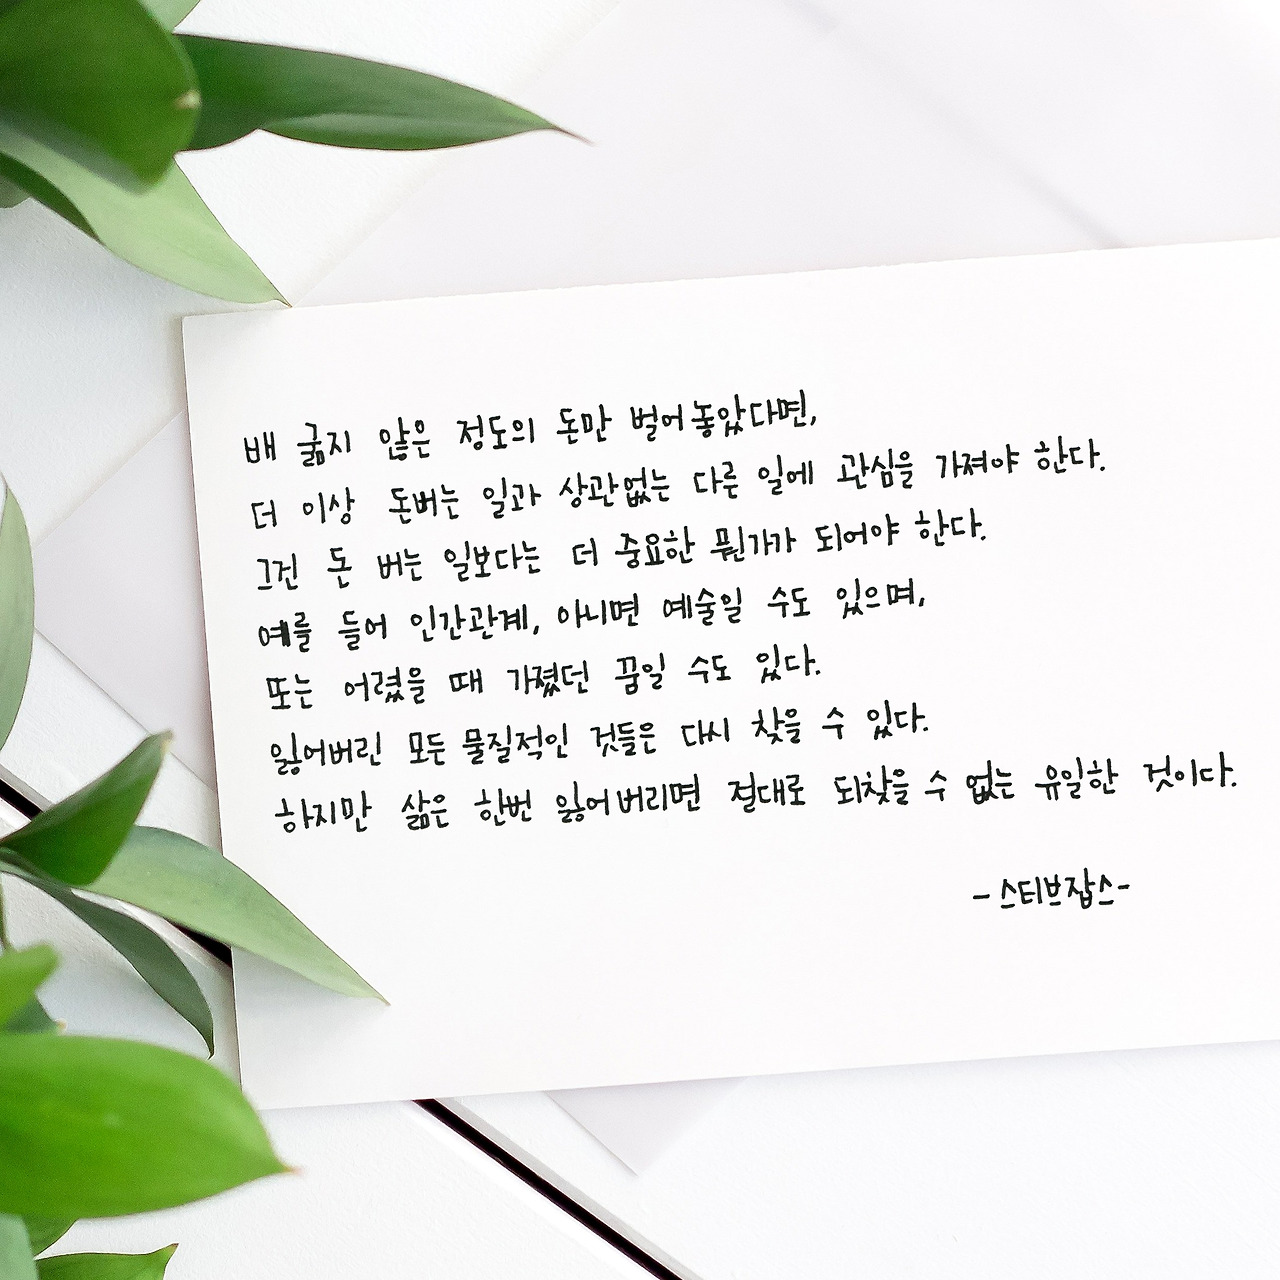 배 굶지 않은 정도의 돈만 벌어놓았다면,
더 이상 돈버는 일과 상관없는 다른 일에 관심을 가져야 한다.
그건 돈 버는 일보다는 더 중요한 뭔가가 되어야 한다.
예를 들어 인간관계, 아니면 예술일 수도 있으며,
또는 어렸을 때 가졌던 꿈일 수도 있다.
잃어버린 모든 물질적인 것들은 다시 찾을 수 있다.
하지만 삶은 한번 잃어버리면 절대로 되찾을 수 없는 유일한 것이다.
-스티브잡스-